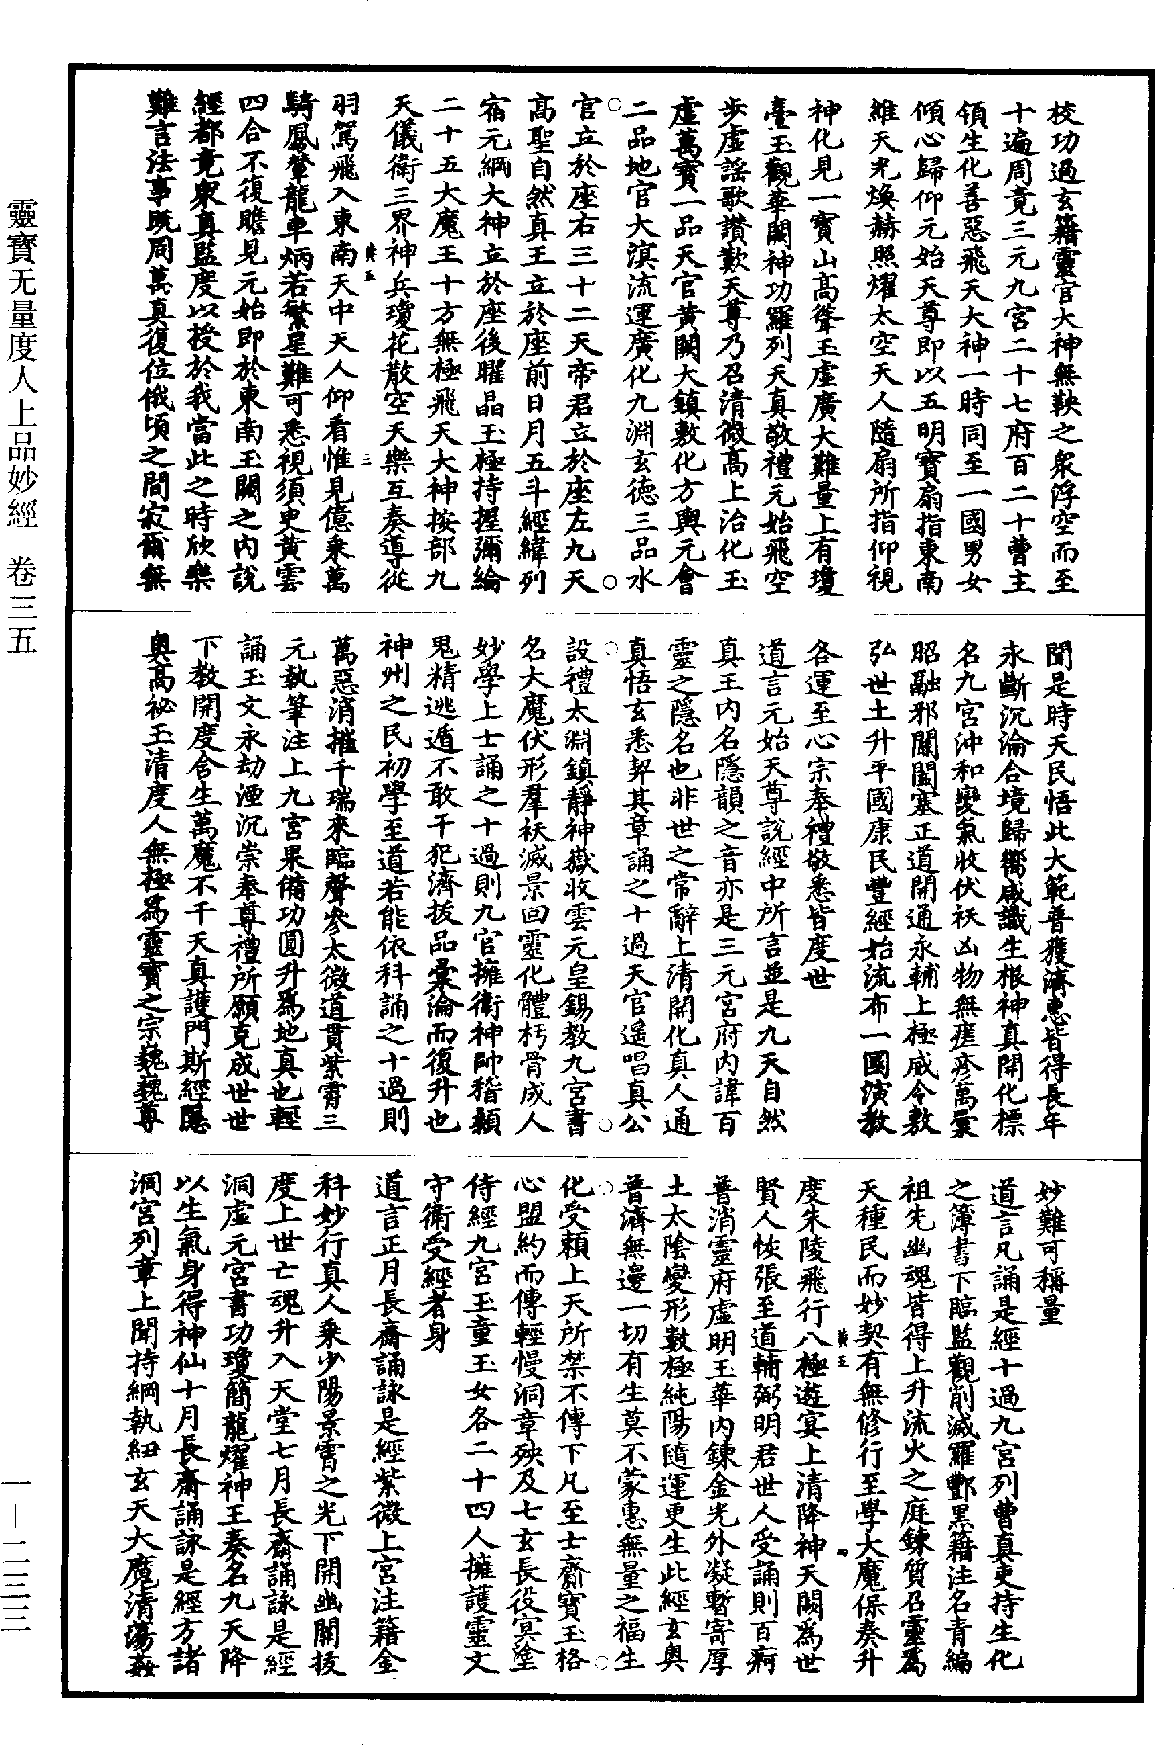 校功過玄籍靈官大神無鞅之衆浮空而至
十遍周竟三元九宮二十七府百二十曹主
領生化善惡飛天大神一時同至一國男女
傾心歸仰元始天尊即以五明寶扇指東南
維天光煥赫照燿太空天人隨扇所指仰視
神化見一寶山高聳玉虛廣大難量上有瓊
臺玉觀華闕神功羅列天真敬禮元始飛空
步虛謠歌讚歎天尊乃召清微高上洽化玉
虛萬寶一品天官黃闕大鎮敷化方輿元會
二品地官大溟流運廣化九淵玄德三品水
官立於座右三十二天帝君立於座左九天
高聖自然真王立於座前日月五斗經緯列
宿元綱大神立於座後曜晶玉極持握彌綸
二十五大魔王十方無極飛天大神按部九
天儀衛三界神兵瓊花散空天樂互奏導從
羽駕飛入東南天中天人仰看惟見億乘萬
騎鳳輦龍車炳若繁星難可悉視須臾黃雲
四合不復瞻見元始即於東南玉闕之內說
經都竟衆真監度以授於我當此之時欣樂
難言法事既周萬真復位俄頃之間寂爾無
聞是時天民悟此大範普獲濟惠皆得長年
永斷沉淪合境歸嚮咸識生根神真開化標
名九宮沖和變氣收伏祅凶物無瘥疹萬彙
昭融邪關闔塞正道開通永輔上極咸令敷
弘世土升平國康民豐經始流布一國演教
各運至心宗奉禮敬悉皆度世
道言元始天尊說經中所言並是九天自然
真王內名隱韻之音亦是三元宮府內諱百
靈之隱名也非世之常辭上清開化真人通
真悟玄悉契其章誦之十過天官遥唱真公
設禮太淵鎮靜神嶽收雲元皇錫教九宮書
名大魔伏形羣祅滅景回靈化體朽骨成人
妙學上士誦之十過則九官擁衛神帥稽顙
鬼精逃遁不敢干犯濟拔品彙淪而復升也
神州之民初學至道若能依科誦之十過則
萬惡消摧千瑞來臨聲參太微道貫紫霄三
元執筆注上九宮果備功圓升為地真也輕
誦玉文永劫湮沉崇奉尊禮所願克成世世
下教開度含生萬魔不干天真護門斯經隱
奧高祕玉清度人無極為靈寶之宗巍巍尊
妙難可稱量
道言凡誦是經十過九宮列曹真吏持生化
之簿書下臨監觀削滅羅酆黑籍注名青編
祖先幽魂皆得上升流火之庭鍊質召靈為
天種民而妙契有無修行至學大魔保奏升
度朱陵飛行八極遊宴上清降神天闕為世
賢人恢張至道輔弼明君世人受誦則百痾
普消靈府虛明玉華內鍊金光外凝暫寄厚
土太陰變形數極純陽隨運更生此經玄奧
普濟無邊一切有生莫不蒙惠無量之福生
化受賴上天所禁不傳下凡至士齋寶玉格
心盟約而傳輕慢洞章殃及七玄長役冥塗
侍經九宮玉童玉女各二十四人擁護靈文
守衛受經者身
道言正月長齋誦詠是經紫微上宮注籍金
科妙行真人乘少陽景霄之光下開幽關拔
度上世亡魂升入天堂七月長齋誦詠是經
洞虛元宮書功瓊簡龍燿神王奏名九天降
以生氣身得神仙十月長齋誦詠是經方諸
洞宮列章上聞持綱執紐玄天大魔清蕩姦
靈寶无量度人上品妙經 卷三五
一—二三三